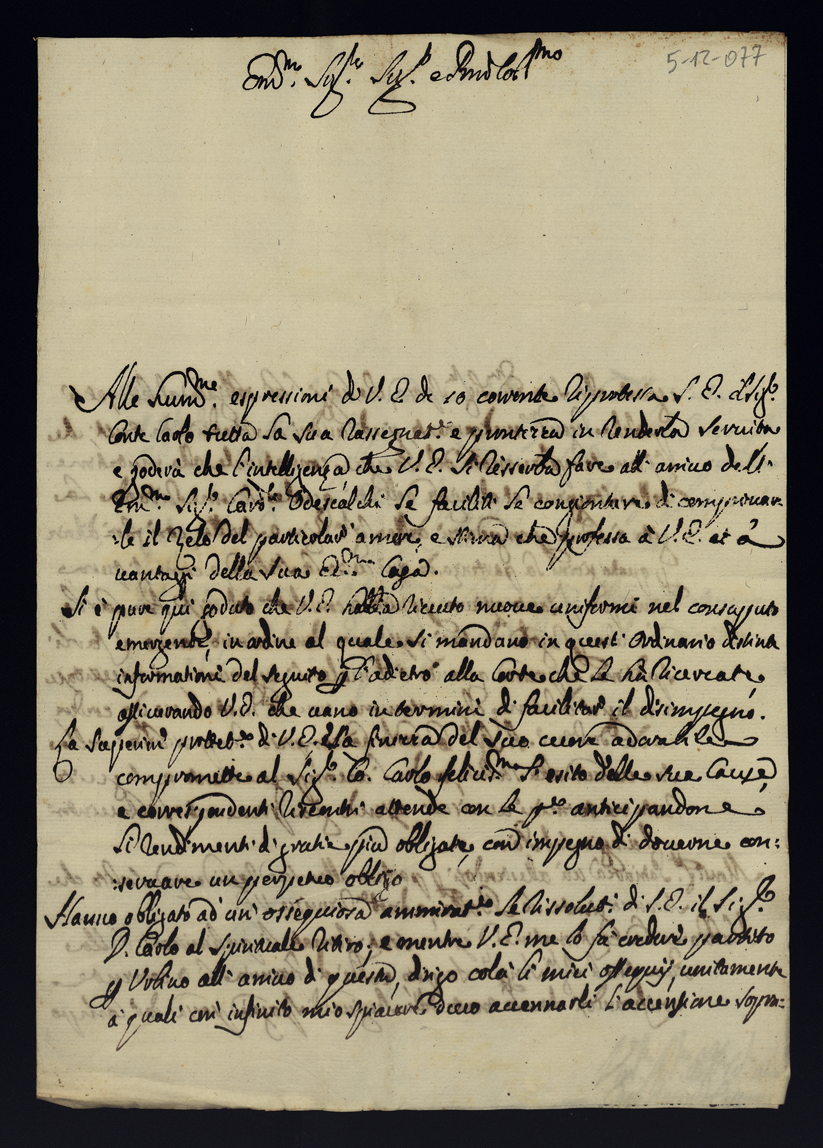 5-12-077
Em.mo Sig.re Sig.r e Pron Col.mo
Alle hum.me espressioni di V. E. de 10 corrente riprotesta S. E. il Sig.r
Conte Carlo tutta la sua rassegnat.e e prontezza in renderla servita
e goderà che l'intelligenza che V. E. si riserva fare all'arrivo dell'
Em.mo Sig.r Card.le Odescalchi le faciliti le congionture di comprovar
:le il zelo del particolar amore, e stima che professa à V. E. et à
vantaggi della sua Ecc.ma Casa.
Si è pure qui goduto che V. E. habbia ricevuto nuove uniformi nel consaputo
emergente, in ordine al quale si mandano in questi ordinario distinta
informatione del seguito p l'adietro alla Corte che le hà ricercate
assicurando V. E. che vano in termini di facilitar il disimpegno.
La superior protet.e di V. E. e la finezza del suo cuore adorabile
compromette al Sig.r Co. Carlo felicis.mo l'esito delle sue Cause
e correspondenti riscontri attende con le p.e anticipandone
li rendimenti di gratie più obligate, con impegno di doverne con:
:servare un perpetuo obligo
Hanno obligato ad un' ossequiosa ammirat.e le rissolut.i di S. E. il Sig.r
D. Carlo al spirituale ritiro, e mentre V. E. me lo fà credere partito
p Urbino all' arrivo di questa, dirigo colà li miei ossequij, unitamente
à quali con infinito mio spiacere devo accennarli l'accensione sopra: